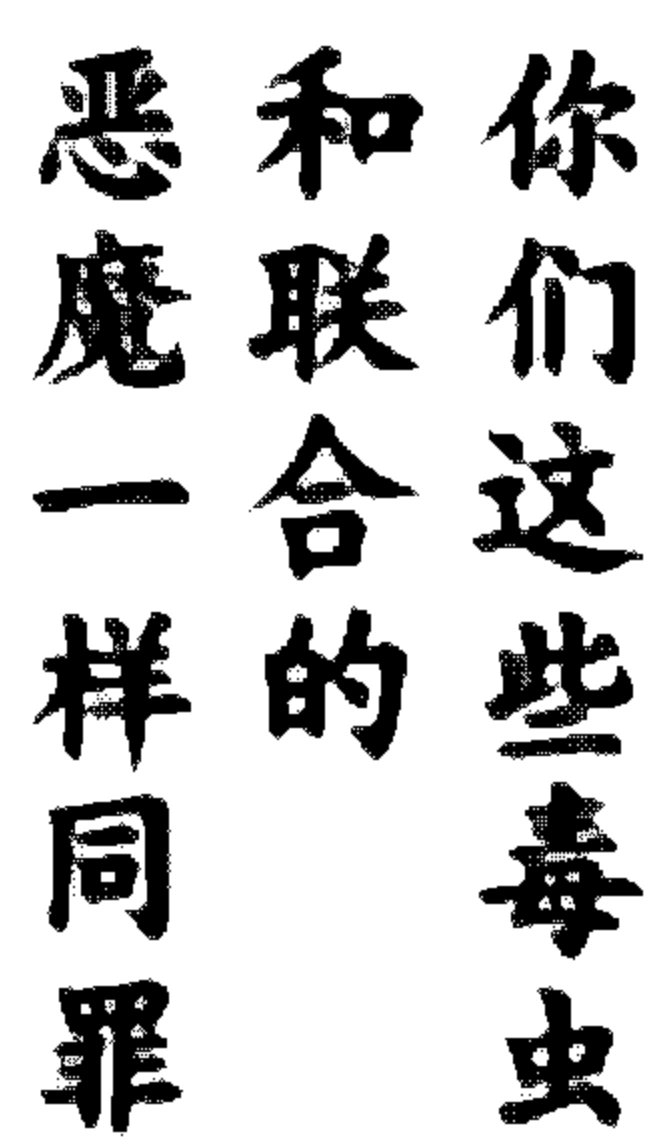 你们这些毒虫
和联合的
恶魔一样同罪